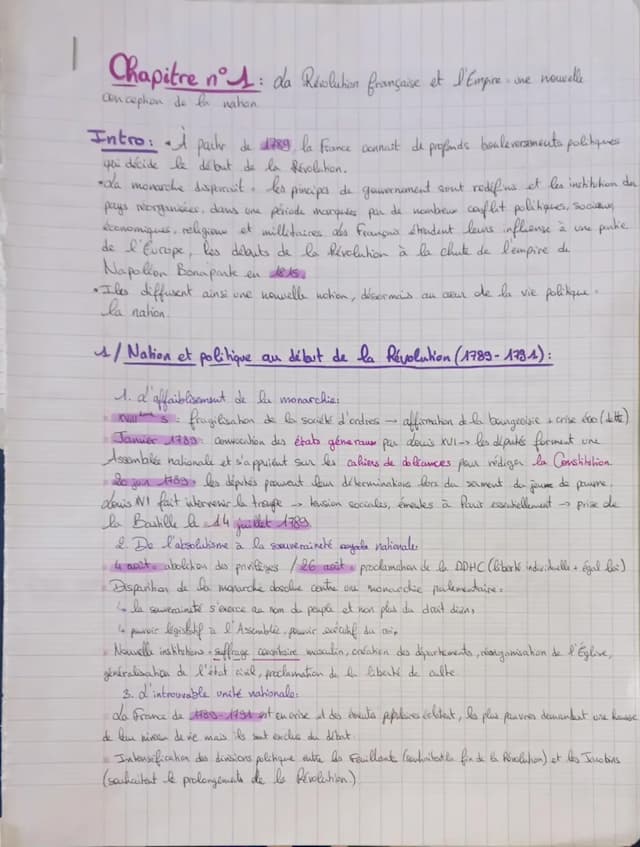 Chapitre n°1 : La Révolution française et l'Empire : une nouvelle
conception de la nation
Intro : • À partir de 1789 la France connait de profonds bouleversements politiques
qui décide le début de la Révolution.
• La monarchie disparait. les principes de gouvernement sont redéfinis et les institution du
pays réorganisées, dans une période marquée par de nombreux conflit politiques, sociaux,
économiques, religieux et millitaires des Français étendent leurs influense à une partie
de l'Europe, les débuts de la Révolution à la chute de l'empire de
Napoléon Bonaparte en 1815.
• Iles diffusent ainsi une nouvelle notion, désormais au cœur de la vie politique :
la nation.
1/ Nation et politique au début de la Révolution (1789-1791) :
1. L'affaiblisement de la monarchie:
XVIIIème s : fragilisation de la société d'ordres → affirmation de la bourgeoisie + crise éco (dette)
Janvier 1789 : convocation des états généraux par Louis XVI → les députés forment une
Assemblée nationale et s'appuient sur les cahiers de doléances pour rédiger la Constitution.
20 juin 1789 : les députés prouvent leur détermination lors du serment du jeume de paume,
Louis XVI fait intervenir la troupe → tension sociales, émeutes à Paris essentiellement → prise de
la Bastille le 14 juillet 1789.
2. De l'absolutisme à la souveraineté nationale
4 août : abolition des privilèges / 26 août : proclamation de la DDHC (liberté individuelle + égal loi)
Disparition de la monarchie absolue contre une monarchie parlementaire :
↳ la souveraineté s'exerce au nom du peuple et non plus du droit divin,
↳ pouvoir législatif à l'Assemblée, pouvoir exécutif du roi,
Nouvelle institutions : suffrage censitaire masculin, création des départements, réorganisation de l'Église,
généralisation de l'état civil, proclamation de la liberté de culte.
3. L'introuvable unité nationale:
La France de 1789-1791 est en crise et des émeutes populaires éclatent, les plus pauvres demandent une hausse
de leur niveau de vie mais ils sont exclus du débat.
Intensification des divisions politique entre les Feuillants (souhaitent la fin de la Révolution) et les Jacobins
(souhaitent le prolongements de la Révolution.)